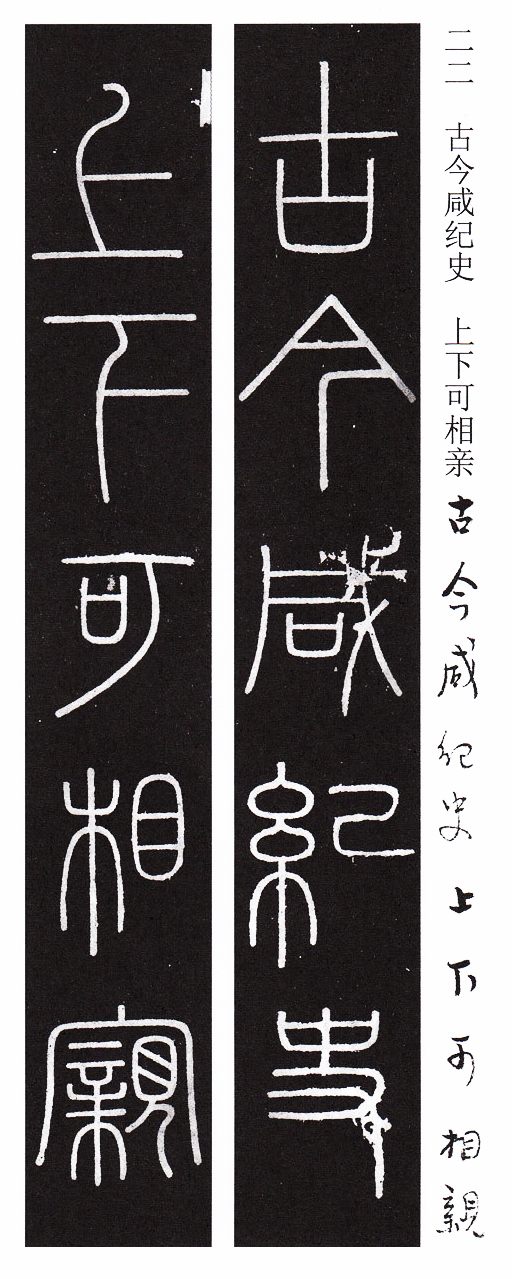 二二 古今咸纪史 上下可相亲 古今咸紀史上下可相親
古今咸紀史
上下可相寴